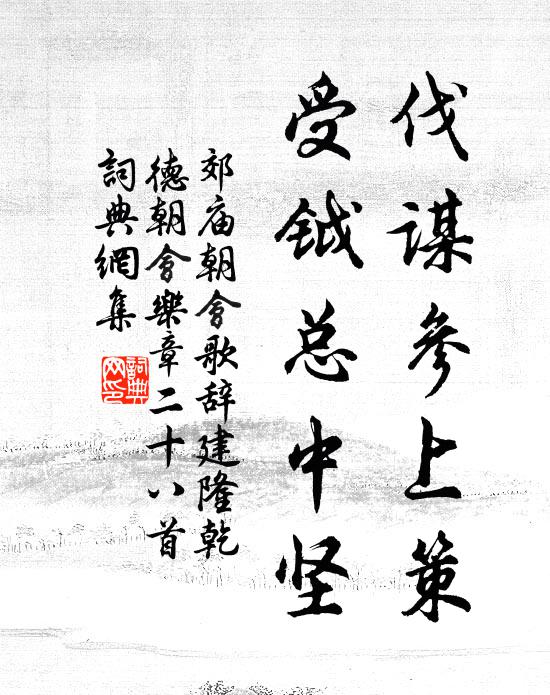 伐谋参上策
受钺总中坚
郊庙朝会歌辞建隆乾
德朝会樂章二十八首
詞典網集
詞典網印